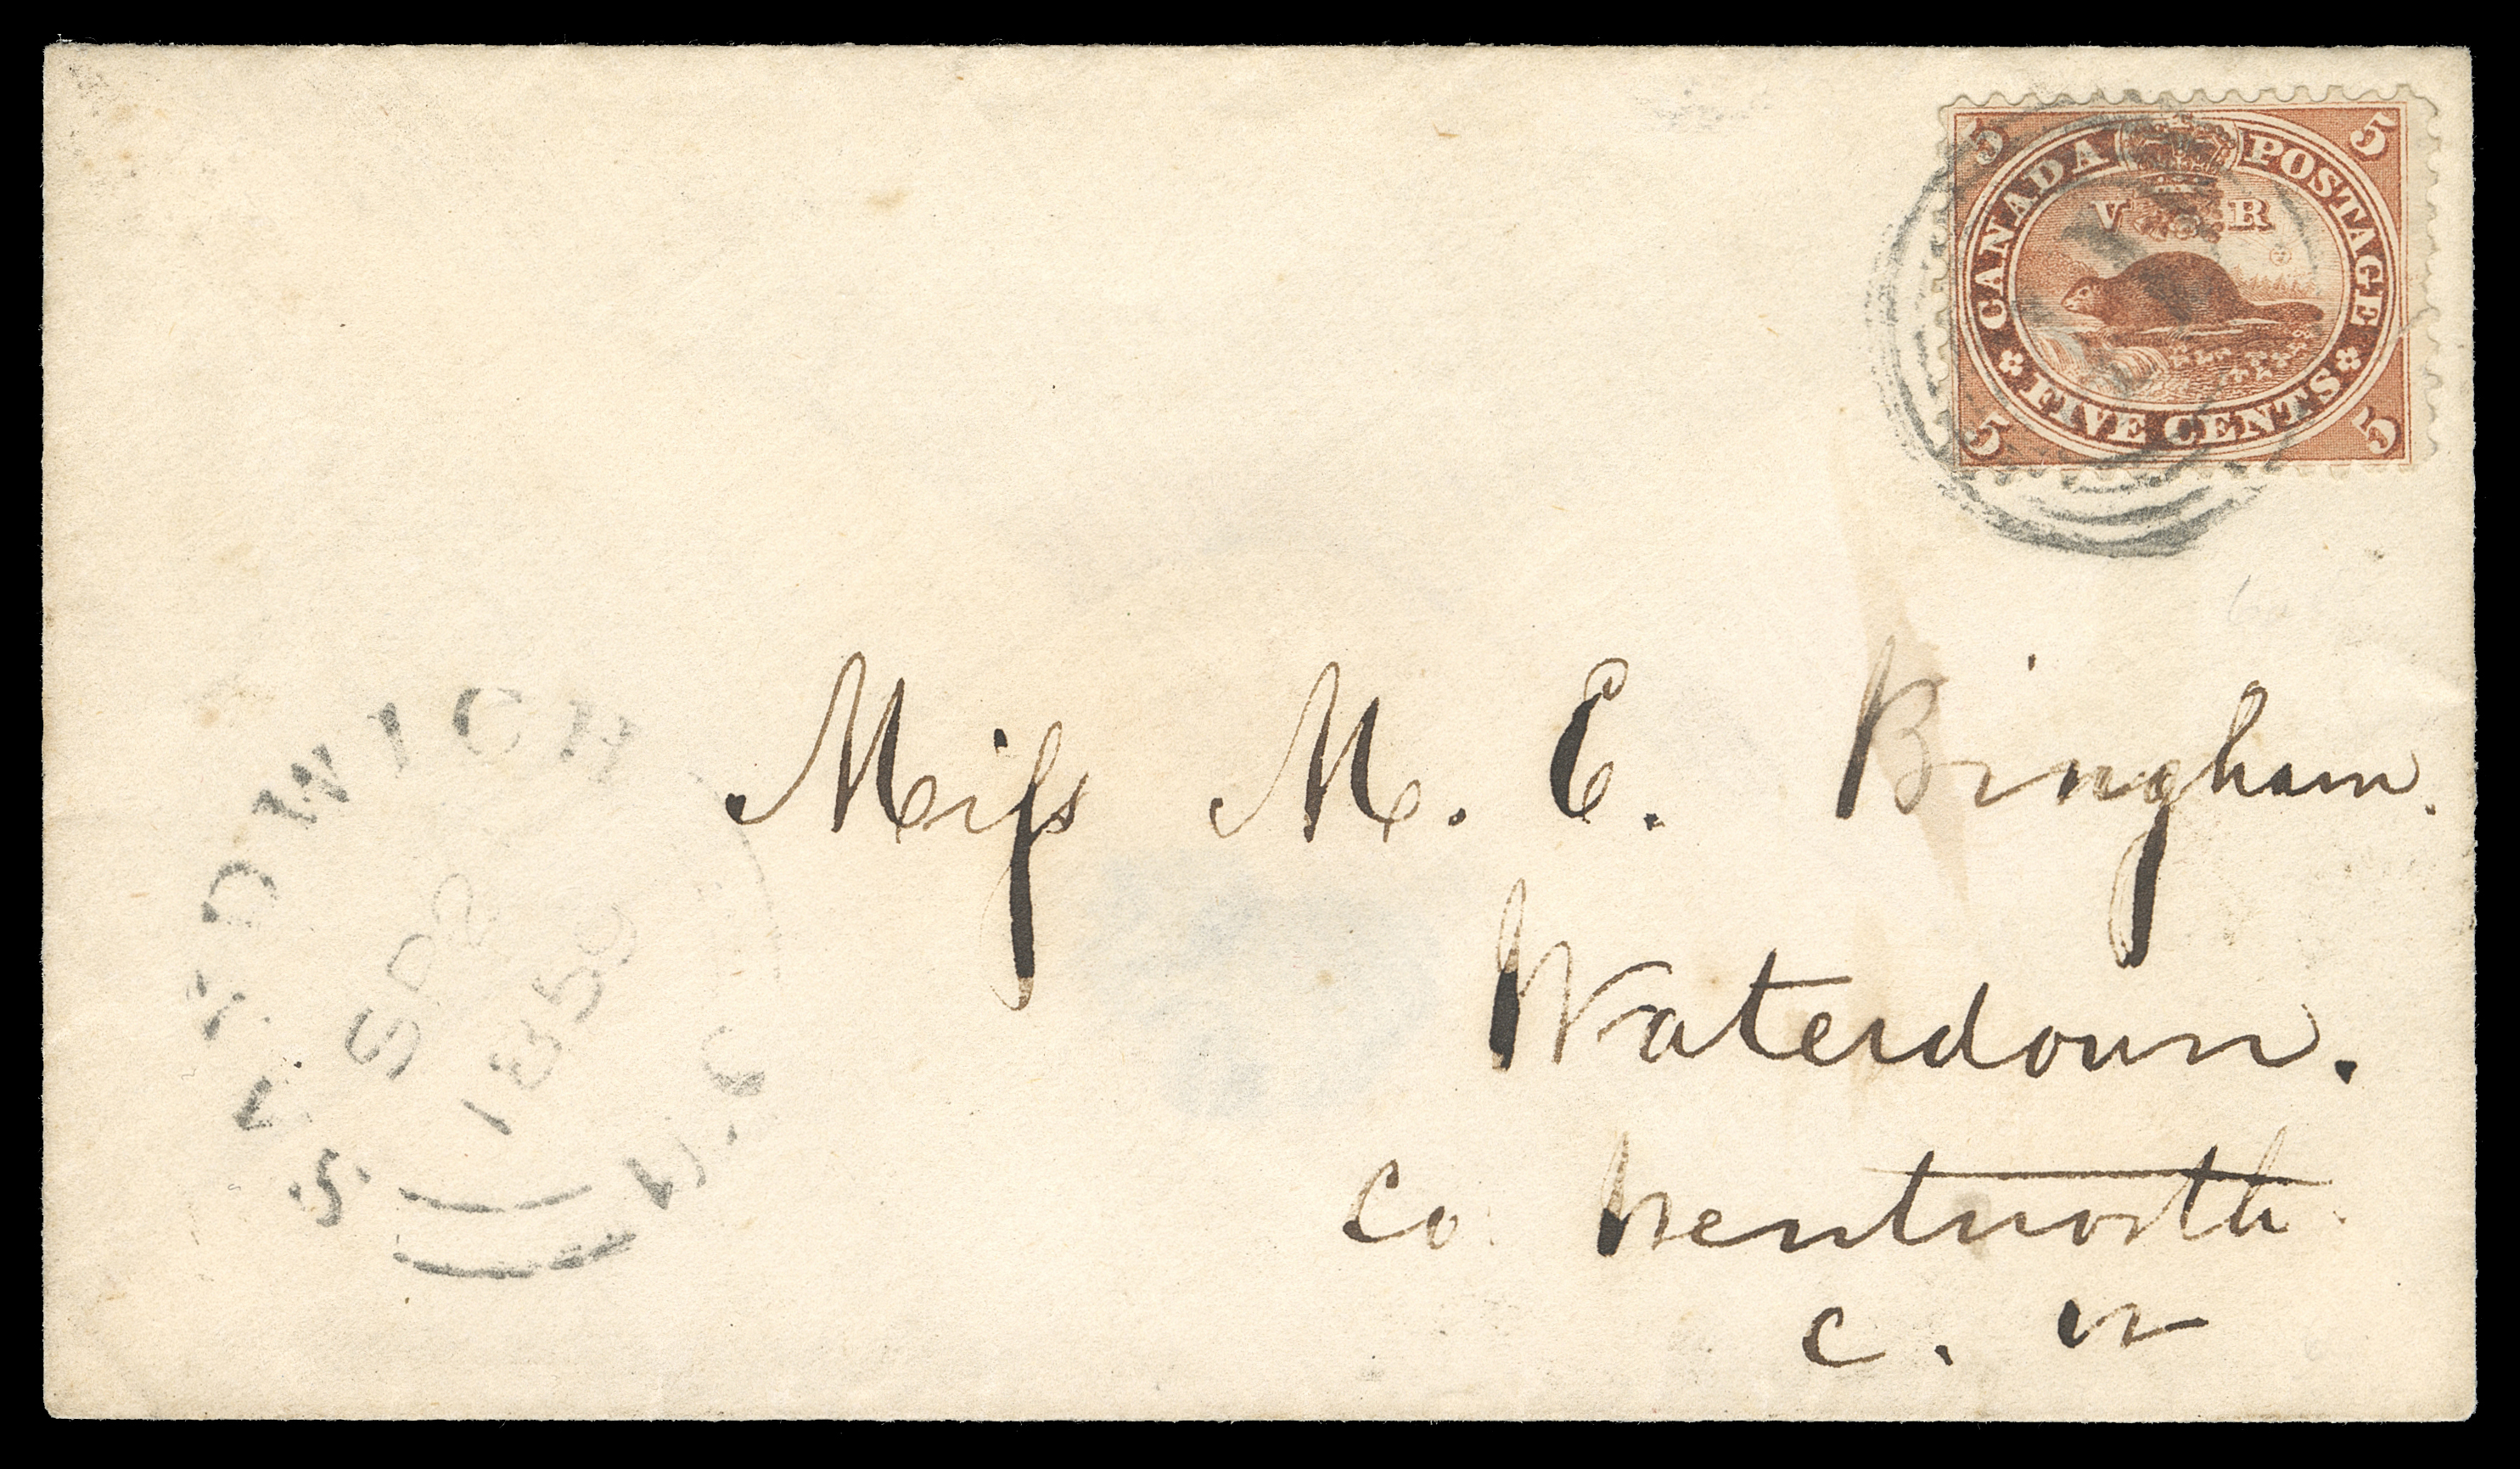 5 5
CANADA POSTAGE
V R
FIVE CENTS
5 5
Miſs M. E. Bingham.
Waterdown.
Co. Wentworth.
C. W
SANDWICH
SP 2
1859
U.C